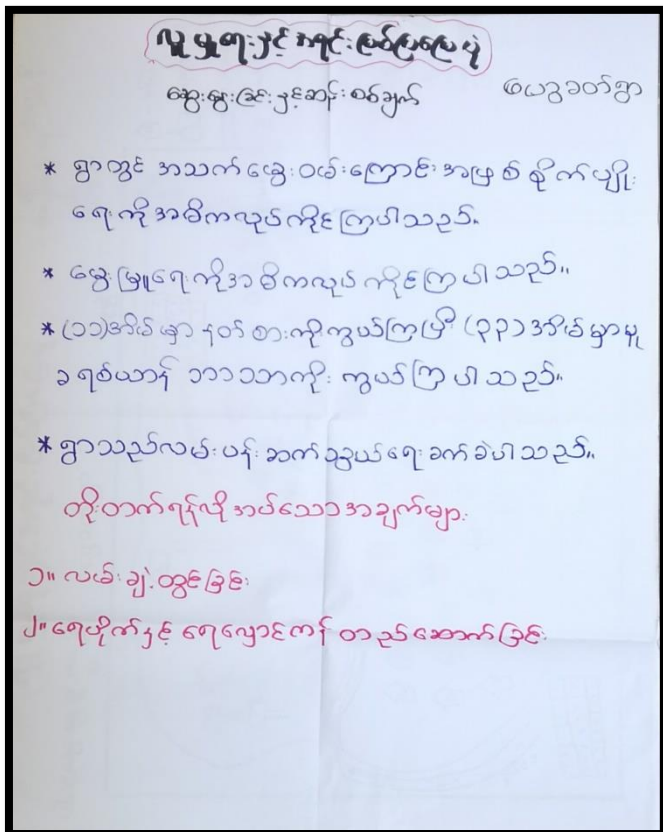 လူမှုရေးနှင့် အရင်းမြစ်ပြမြေပုံ
ဆွေးနွေးခြင်းနှင့်ဆန်းစစ်ချက်
ယေဒွခတ်ရွာ
* ရွာတွင် အသက်မွေးဝမ်းကြောင်းအဖြစ် စိုက်ပျိုး
ရေးကိုအဓိကလုပ်ကိုင်ကြပါသည်။
* မွေးမြူရေးကိုအဓိကလုပ်ကိုင်ကြပါသည်။
* (၁၁)အိမ်မှာ နတ်စားကိုကွယ်ကြပြီး (၃၃)အိမ်မှာမူ
ခရစ်ယာန် ဘာသာကိုး ကွယ်ကြပါသည်။
* ရွာသည်လမ်းပန်းဆက်သွယ်ရေးခက်ခဲပါသည်။
တိုးတက်ရန်လိုအပ်သောအချက်များ
၁။ လမ်းချဲ့ထွင်ခြင်း
၂။ ရေပိုက်နှင့် ရေလှောင်ကန် တည်ဆောက်ခြင်း